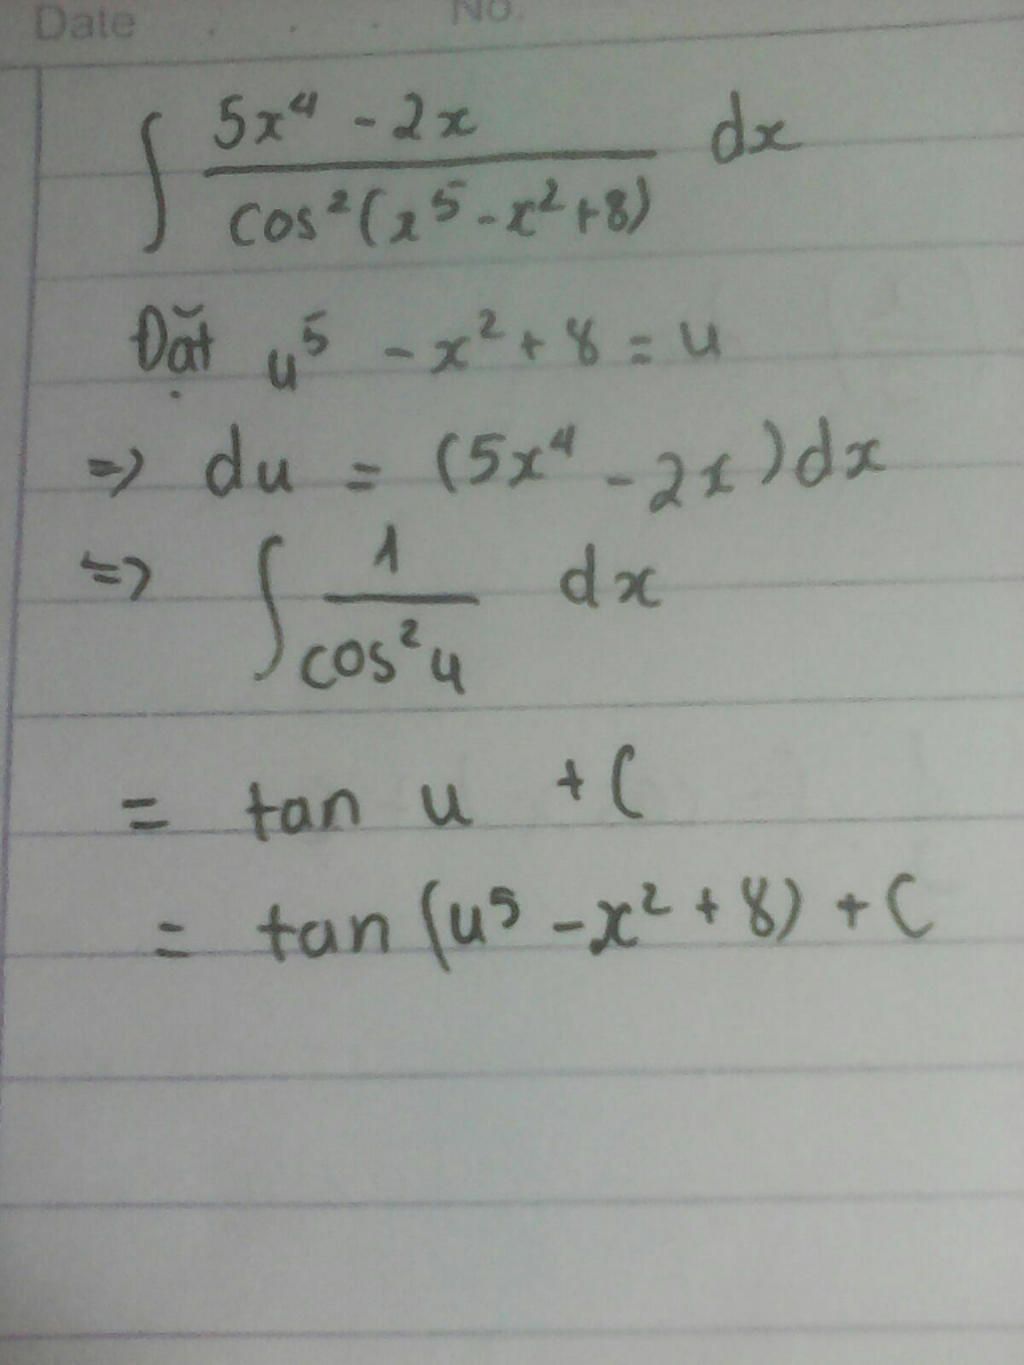 Date No.
∫ (5x⁴ - 2x)/(cos²(x⁵ - x² + 8)) dx
Đặt u⁵ - x² + 8 = u
=> du = (5x⁴ - 2x)dx
=> ∫ 1/(cos²u) dx
= tan u + C
= tan(u⁵ - x² + 8) + C